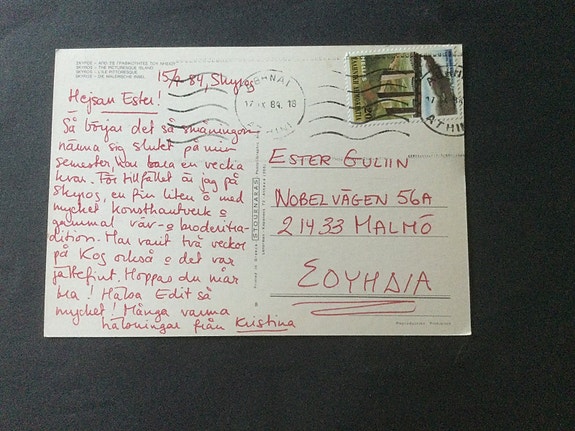 ΣΚΥΡΟΣ
SKYROS - THE PICTURESQUE ISLAND
SKYROS - L'ILE PITTORESQUE
SKYROS - DIE MALERISCHE INSEL
15/9 84, Skyros
Hejsan Ester!
Så börjar det så småningom
närma sig slutet på min
semester, har bara en vecka
kvar. För tillfället är jag på
Skyros, en fin liten ö med
mycket konsthantverk o
gammal väv- o broderitra-
dition. Har varit två veckor
på Kos också o det var
jättefint. Hoppas du mår
bra! Hälsa Edit så
mycket! Många varma
hälsningar från Kristina
STOURNARAS
17.IX 84. 18
ΑΘΗΝΑΙ
ATHINAI
ESTER GULIIN
NOBELVÄGEN 56A
214 33 MALMÖ
ΣΟΥΗΔΙΑ